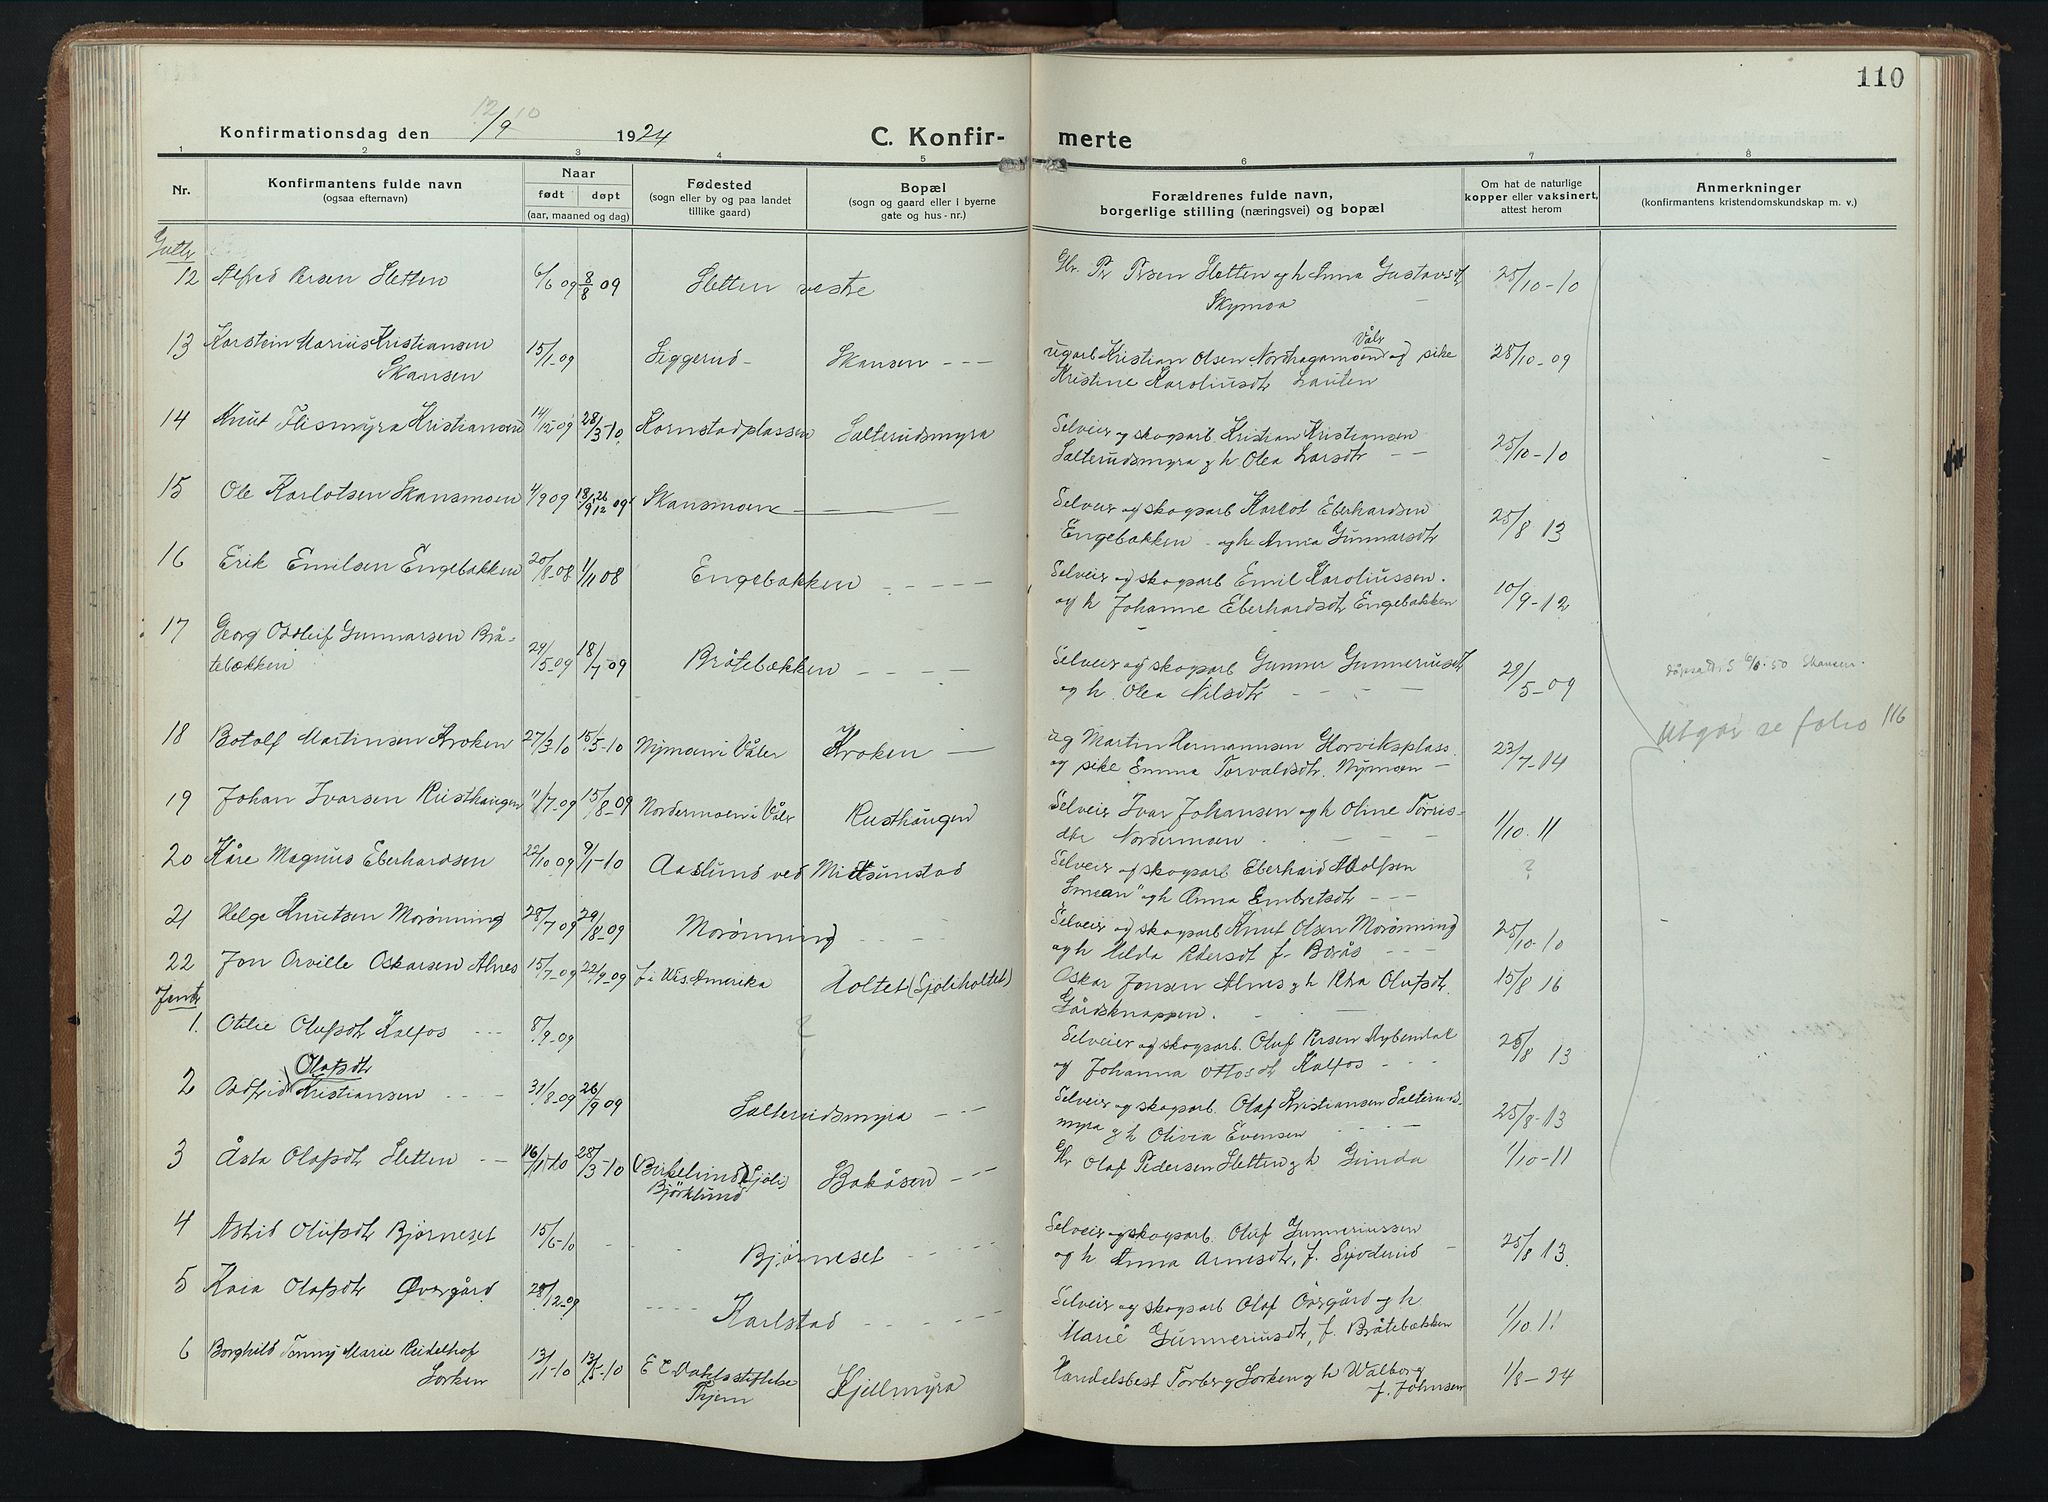 110
12/10
Konfirmationsdag den 1/9 1924
C. Konfir-
merte
1 2 3 4 5 6 7 8
Nr.
Konfirmantens fulde navn
(ogsaa efternavn)
Naar
født døpt
(aar, maaned og dag)
Fødested
(sogn eller by og paa landet
tillike gaard)
Bopæl
(sogn og gaard eller i byerne
gate og hus-nr.)
Forældrenes fulde navn,
borgerlige stilling (næringsvei) og bopæl
Om hat de naturlige
kopper eller vaksinert,
attest herom
Anmerkninger
(konfirmantens kristendomskundskap m. v.)
Gutter
12 Alfred Persen Sletten 6/6 09 8/8 09 Sletten vestre Gbr. Pr Persen Sletten og h Anna Gustavsdtr 25/10-10
Skymoa
13 Karstein Marius Kristiansen 15/1-09 Seggerud - Skansen - - - ugarb Kristian Olsen Nordhagamoen Våler og pike 28/10-09
Skansen Kristine Karoliusdtr Lauten
14 Knut Flismyra Kristiansen 14/12 09 28/3-10 Kornstadplassen Salterudsmyra Selveier og skogsarb. Kristian Kristiansen 25/10-10
Salterudsmyra og h Olea Larsdtr - -
15 Ole Karlotsen Skansmoen 4/9 09 18/9 26/12 09 Skansmoen - - - Selveier og skogsarb Karlot Eberhardsen 25/8 13
Engebakken og h Anna Gunnarsdtr
16 Erik Emilsen Engebakken 20/8-08 1/11 08 Engebakken - - - - Selveier og skogsarb Emil Karoliussen. 10/9-12
og h Johanne Eberhardsdtr Engebakken
17 Georg Oddleif Gunnarsen Brå- 29/5-09 18/7 09 Bråtebækken - - - Selveier og skogsarb Gunner Gunneriuset 29/5-09
tebækken og h. Olea Nilsdtr - - - -
døpsatt. 5 6/6-50 Skansen.
18 Botolf Martinsen Kroken 27/3-10 15/5-10 Nymoen i Våler Kroken - ug Martin Hermannsen Horviksplass. 23/7-14
og pike Emma Torvaldsdtr. Nymoen -
Utgår se folio 116
19 Johan Ivarsen Rusthaugen 11/7-09 15/8-09 Nordermoen i Våler Rusthaugen Selveier Ivar Johansen og h Oline Torris- 1/10. 11
dtr Nordermoen.
20 Kåre Magnus Eberhardsen 22/10 09 9/1-10 Aaslund ved Midtsunstad Selveier og skogsarb Eberhard Adolfsen ?
Smeen" og h Anna Embretsdtr - - -
21 Helge Knutsen Morønning 28/7 09 29/8-09 Morønning - - - Selveier og skogsarb Knut Olsen Morønning 25/10-10
og h Hilda Pedersdt f. Borås - -
22 Jon Orville Oskarsen Alnes 15/7-09 22/9-09 f. i Wis. Amerika Holtet (Sjøliholtet) Oskar Jonsen Alnes og h Olufsdt. 15/8 16
Gårdsknappen.
Jenter
1. Otilie Olufsdtr Kalfos - - - 8/9-09 ? Selveier og skogsarb. Oluf Persen Rybendal 25/8 13
og Johanna Ottosdtr Kalfos - -
2 Oddfrid Olafsdtr Kristiansen - - - - 31/8-09 26/9 09 Salterudsmyra - - - Selveier og skogsarb. Olaf Kristiansen Salteruds- 25/8-13
myra og h Olivia Evensen - - - -
3 Åsta Olafsdt Sletten - - 16/1-10 28/3-10 (Birkelund Sjøli) Bakåsen - - - Gbr Olaf Pedersen Sletten og h Gunda 1/10-11
Bjørklund
4 Astrid Olufsdtr Bjørneset 15/6-10 - - - Bjørneset - - - - Selveier og skogsarb. Oluf Gunneriussen 25/8 13.
og h Anna Arnesdtr, f. Syvderud -
5 Kaia Olafsdtr Øvergård 28/12-09 - - - - Karlstad - - - - Selveier og skogsarb Olaf Övergård og h. 1/10. 11
Marie Gunneriusdtr, f. Bråtebækken
6 Borghild Tonny Marie Reidelhof 13/1-10 13/5-10 E C Dahlsstiftelse Kjellmyra Handelsbest Torberg Lorken og h Walborg 1/8-24
Lorken Thjem f. Johnsen